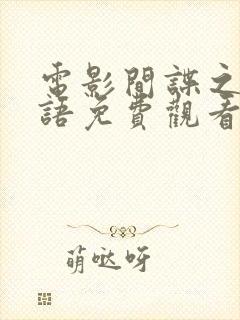 電影間諜之
語免費觀看
萌哒呀